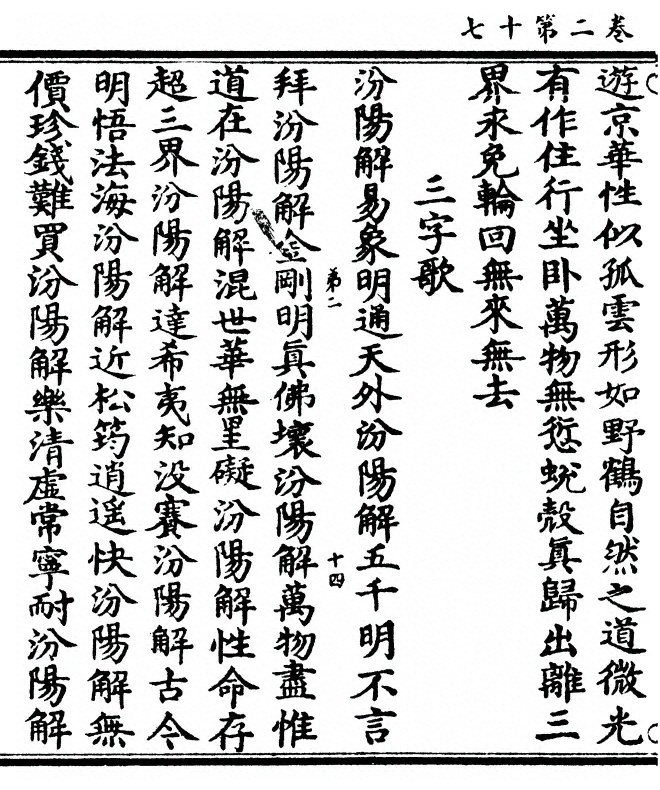 卷二第十七
遊京華性似孤雲形如野鶴自然之道微光
有作住行坐卧萬物無愆蛻殼真歸出離三
界永免輪回無來無去
三字歌
汾陽解易象明通天外汾陽解五千明不言
第二
十四
拜汾陽解金剛明真佛壞汾陽解萬物盡惟
道在汾陽解混世華無罣礙汾陽解性命存
超三界汾陽解達希夷知没賽汾陽解古今
明悟法海汾陽解近松筠逍遥快汾陽解無
價珍錢難買汾陽解樂清虛常寧耐汾陽解